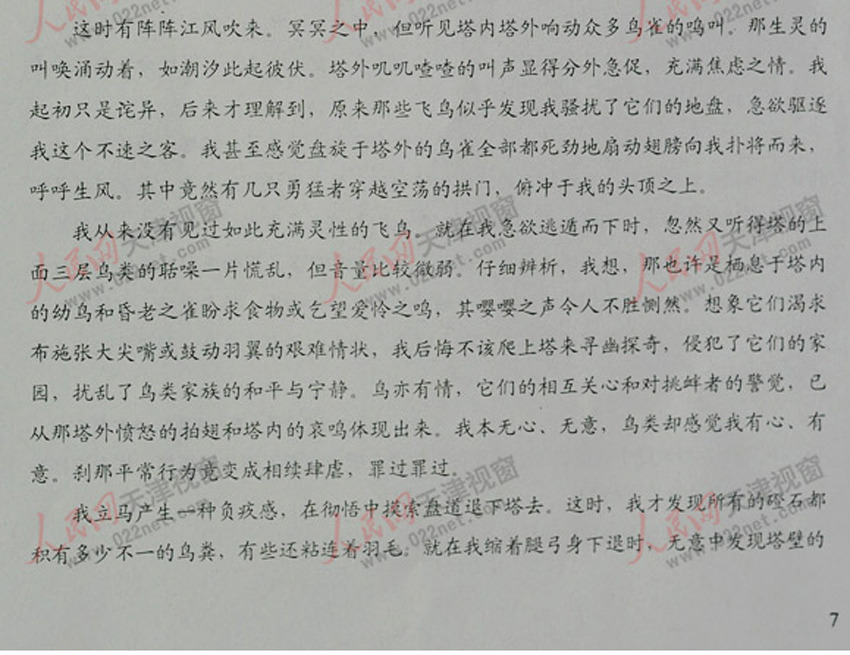 这时有阵阵江风吹来。冥冥之中，但听见塔内塔外响动众多鸟雀的鸣叫。那生灵的
叫唤涌动着，如潮汐此起彼伏。塔外叽叽喳喳的叫声显得分外急促，充满焦虑之情。我
起初只是诧异，后来才理解到，原来那些飞鸟似乎发现我骚扰了它们的地盘，急欲驱逐
我这个不速之客。我甚至感觉盘旋于塔外的鸟雀全部都死劲地扇动翅膀向我扑将而来，
呼呼生风。其中竟然有几只勇猛者穿越空荡的拱门，俯冲于我的头顶之上。
我从来没有见过如此充满灵性的飞鸟。就在我急欲逃遁而下时，忽然又听得塔的上
面三层鸟类的聒噪一片慌乱，但音量比较微弱。仔细辨析，我想，那也许是栖息于塔内
的幼鸟和昏老之雀盼求食物或乞望爱怜之鸣，其嘤嘤之声令人不胜恻然。想象它们渴求
布施张大尖嘴或鼓动羽翼的艰难情状，我后悔不该爬上塔来寻幽探奇，侵犯了它们的家
园，扰乱了鸟类家族的和平与宁静。鸟亦有情，它们的相互关心和对挑衅者的警觉，已
从那塔外愤怒的拍翅和塔内的哀鸣体现出来。我本无心、无意，鸟类却感觉我有心、有
意。刹那平常行为竟变成相续肆虐，罪过罪过。
我立马产生一种负疚感，在彻悟中摸索盘道退下塔去。这时，我才发现所有的磴石都
积有多少不一的鸟粪，有些还粘连着羽毛。就在我缩着腿弓身下退时，无意中发现塔壁的
7
人民网天津视窗
www.022net.com
人民网天津视窗
www.022net.com
人民网天津视窗
www.022net.com
人民网天津视窗
www.022net.com
人民网天津视窗
www.022net.com
人民网天津视窗
www.022net.com
人民网天津视窗
www.022net.com